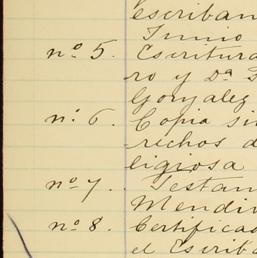 escriban
Junio
nº 5. Escritura
ro y Dª
Gonzalez
nº 6. Copia si
rechos d
ligiosa
nº 7. Testam
Mendi
nº 8. Certificad
el Escriba